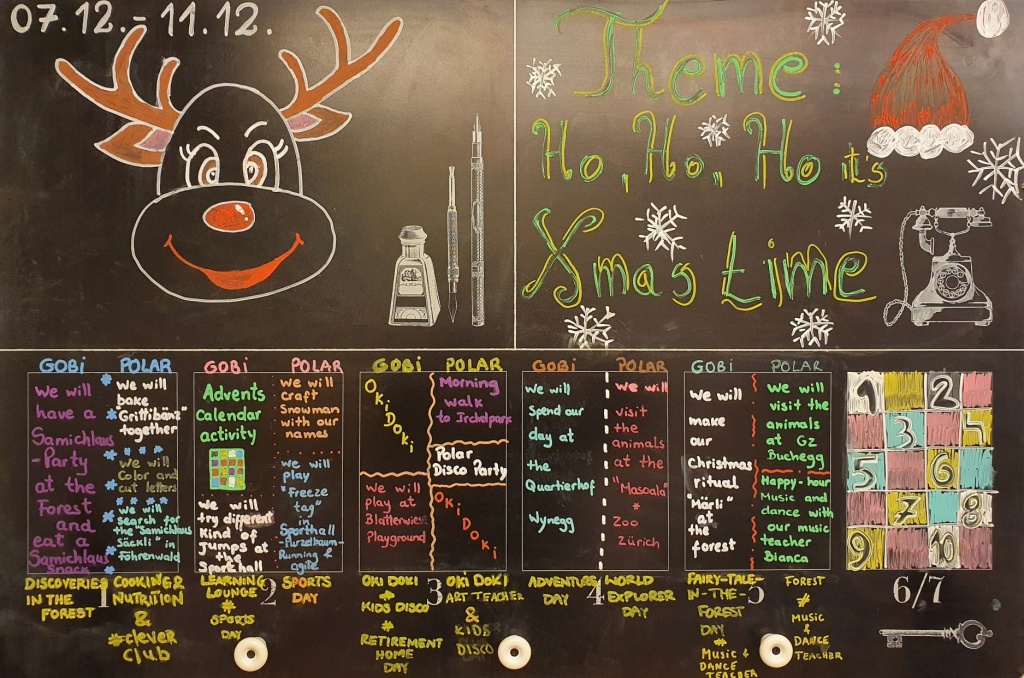 07.12. - 11.12.
Theme:
Ho, Ho, Ho it's
Xmas time
GOBi
We will
have a
Samichlaus
-Party
at the
Forest
and
eat a
Samichlaus
Snack
POLAR
we will
bake
"Grittibänz"
together
we will
Color and
cut letters
we will
search for
the "Samichlaus
Säckli" in
Föhrenwald
1
DISCOVERIES
IN THE
FOREST
COOKING &
NUTRITION
&
#clever
Club
GOBi
Advents
Calendar
activity
We will
try different
Kind of
Jumps at
the
Sporthall
POLAR
we will
craft
Snowman
with our
names
we will
play
"Freeze
tag"
in
Sporthall
-Purzelbaum-
Running &
agile
2
LEARNING
LOUNGE
#
SPORTS
DAY
SPORTS
DAY
GOBi
OKiDOKi
we will
play at
Blatterwiese
Playground
POLAR
Morning
walk
to Irchelpark
Polar
Disco Party
OKiDOKi
3
OKI DOKI
#
KIDS DISCO
#
RETIREMENT
HOME
DAY
OKI DOKI
ART TEACHER
&
KIDS
DISCO
GOBi
We will
Spend our
day at
the
Quartierhof
Wynegg
POLAR
we will
visit
the
animals
at the
"Masoala"
*
Zoo
Zürich
4
ADVENTURE
DAY
WORLD
EXPLORER
DAY
GOBi
We will
make
our
Christmas
ritual
"Märli"
at
the
forest
POLAR
we will
visit the
animals
at GZ
Buchegg
Happy-hour
Music and
dance with
our music
teacher
Bianca
5
FAIRY-TALE-
IN-THE-
FOREST
DAY
#
Music &
DANCE
TEACHER
FOREST
#
MUSIC
&
DANCE
TEACHER
1 2
3 4
5 6
7 8
9 10
6/7